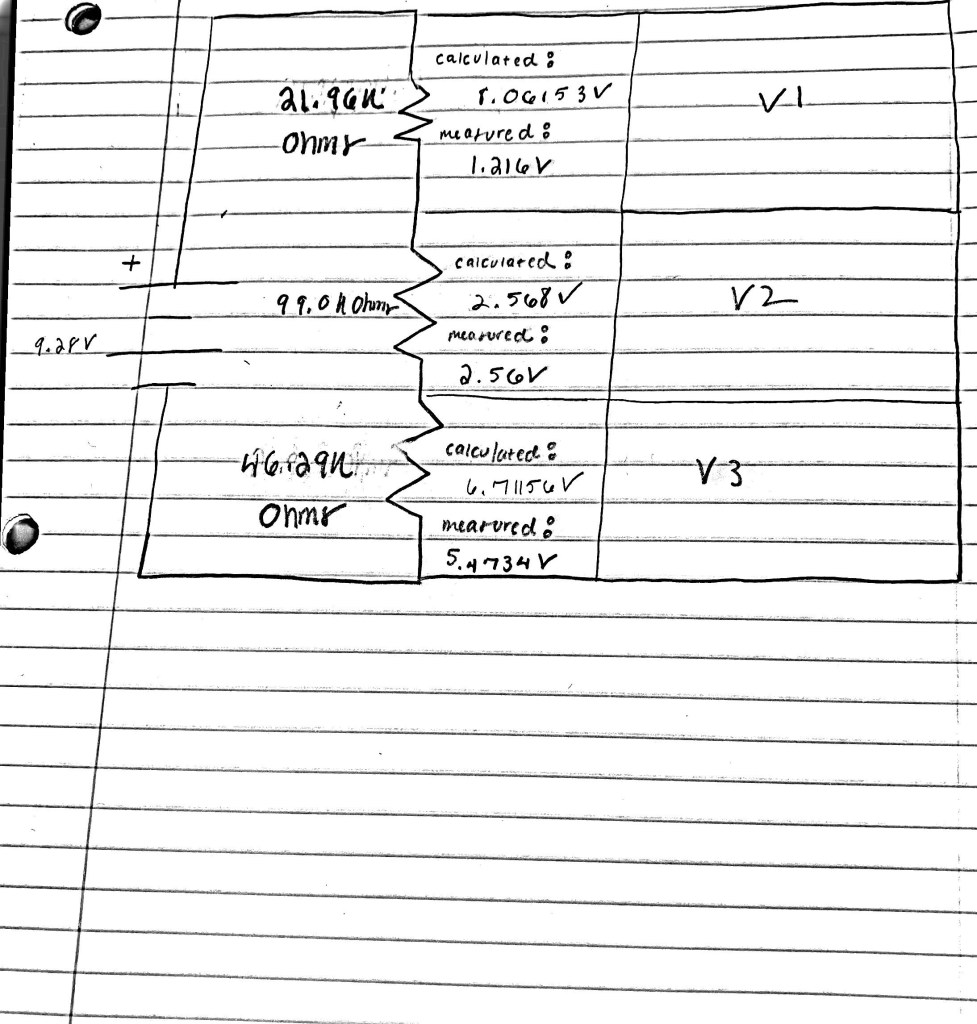 calculated:
21.96K
Ohms
1.06153V
measured:
1.216V
V1
+
9.28V
99.0K Ohms
calculated:
2.568V
measured:
2.56V
V2
46.29K
Ohms
calculated:
6.71156V
measured:
5.4734V
V3